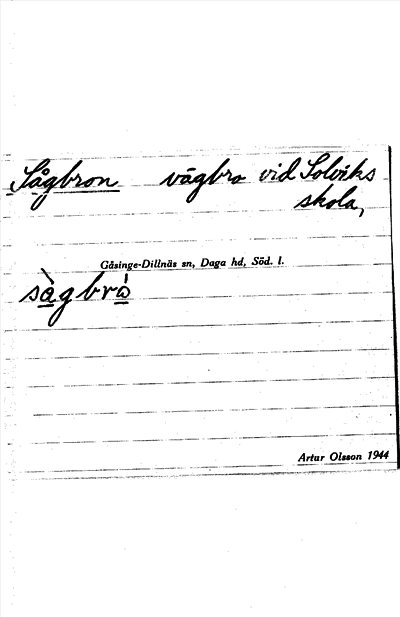 Sågbron vägbro vid Solviks
skola,
Gåsinge-Dillnäs sn, Daga hd, Söd. l.
sà̲gbrá̲
Artur Olsson 1944